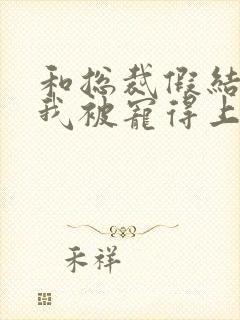 和总裁假结
我被宠得上
禾祥